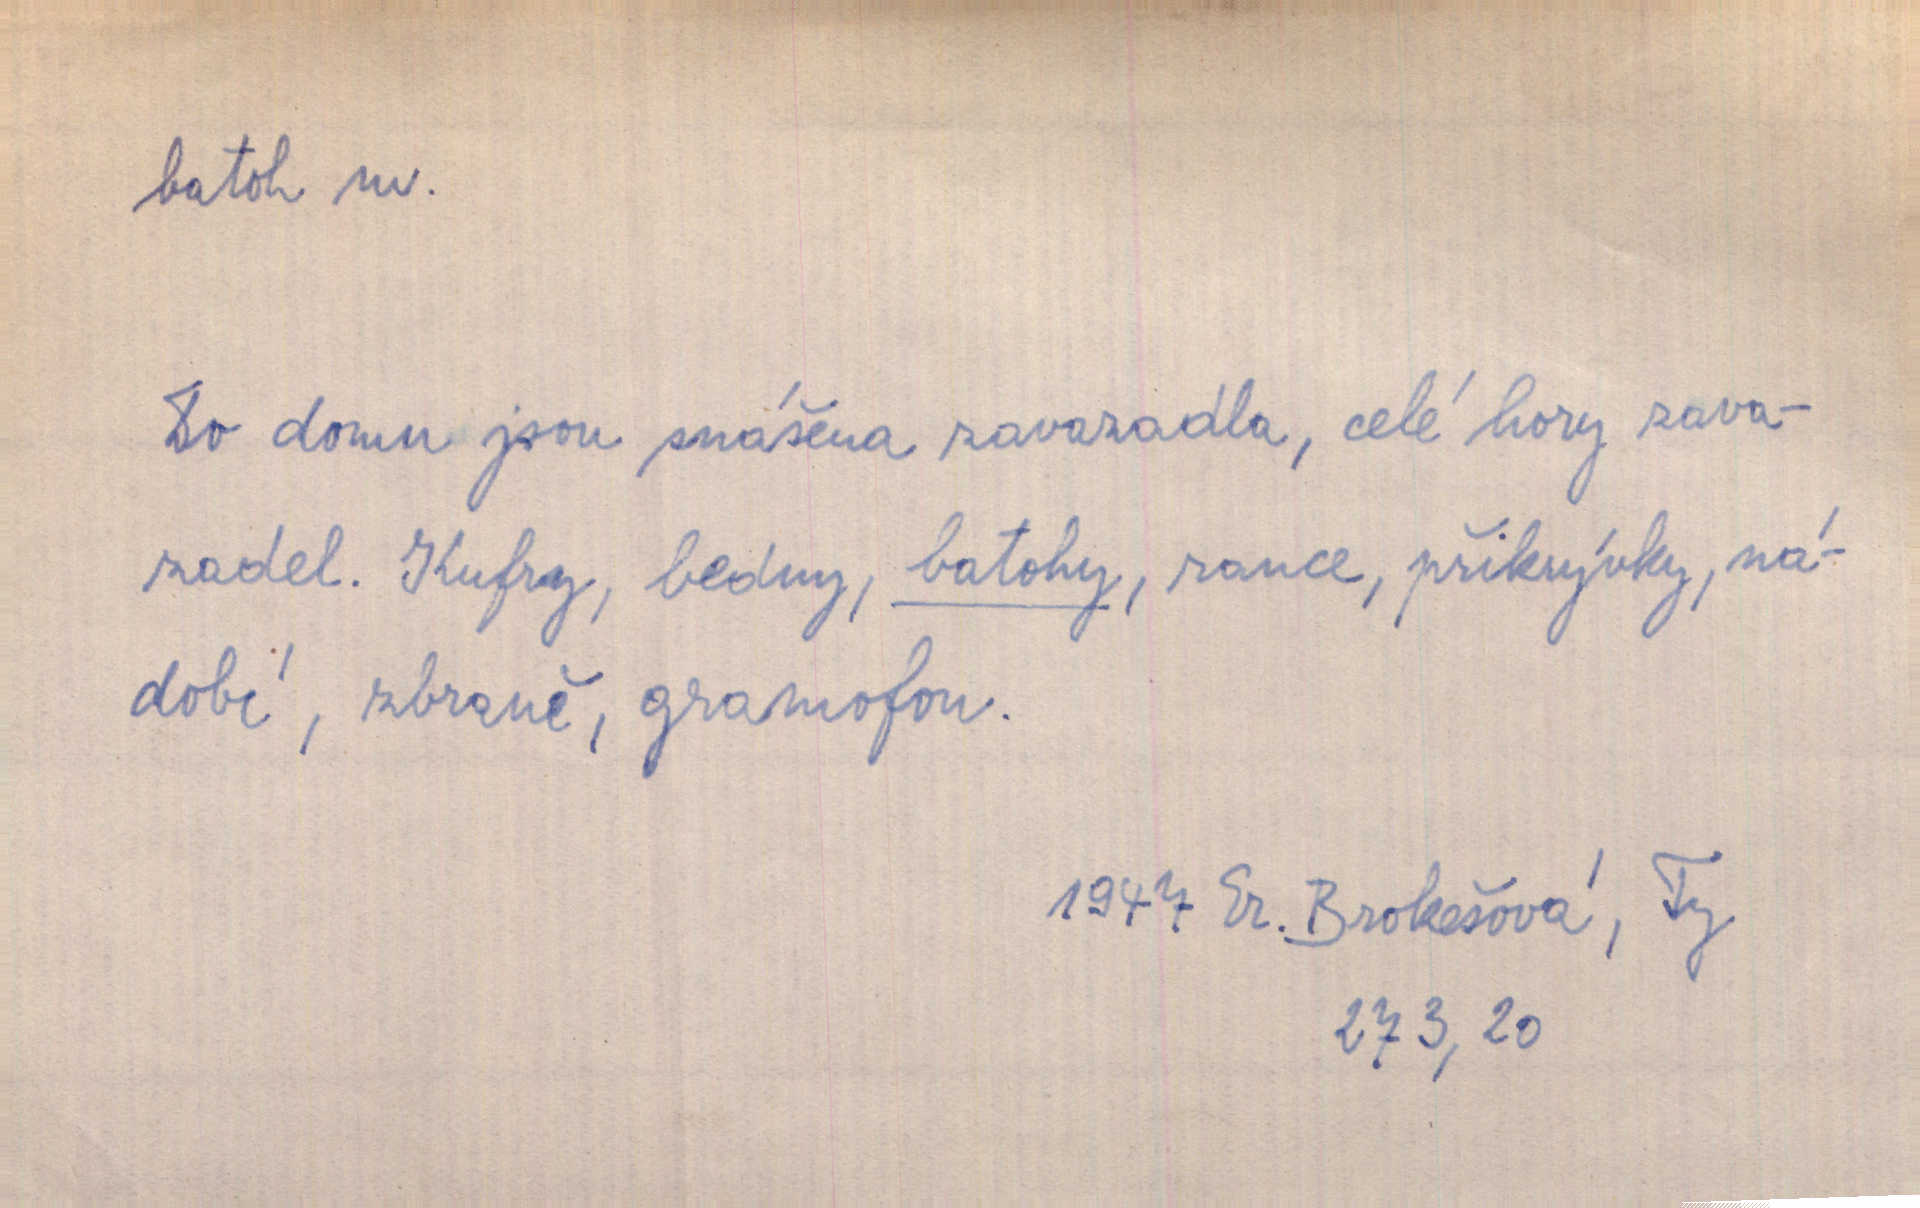 batoh m.
Do domu jsou snášena zavazadla, celé hory zava-
zadel. Kufry, bedny, batohy, rance, přikrývky, ná-
dobí, zbraně, gramofon.
1947 Er. Brokešová, Ty
273, 20